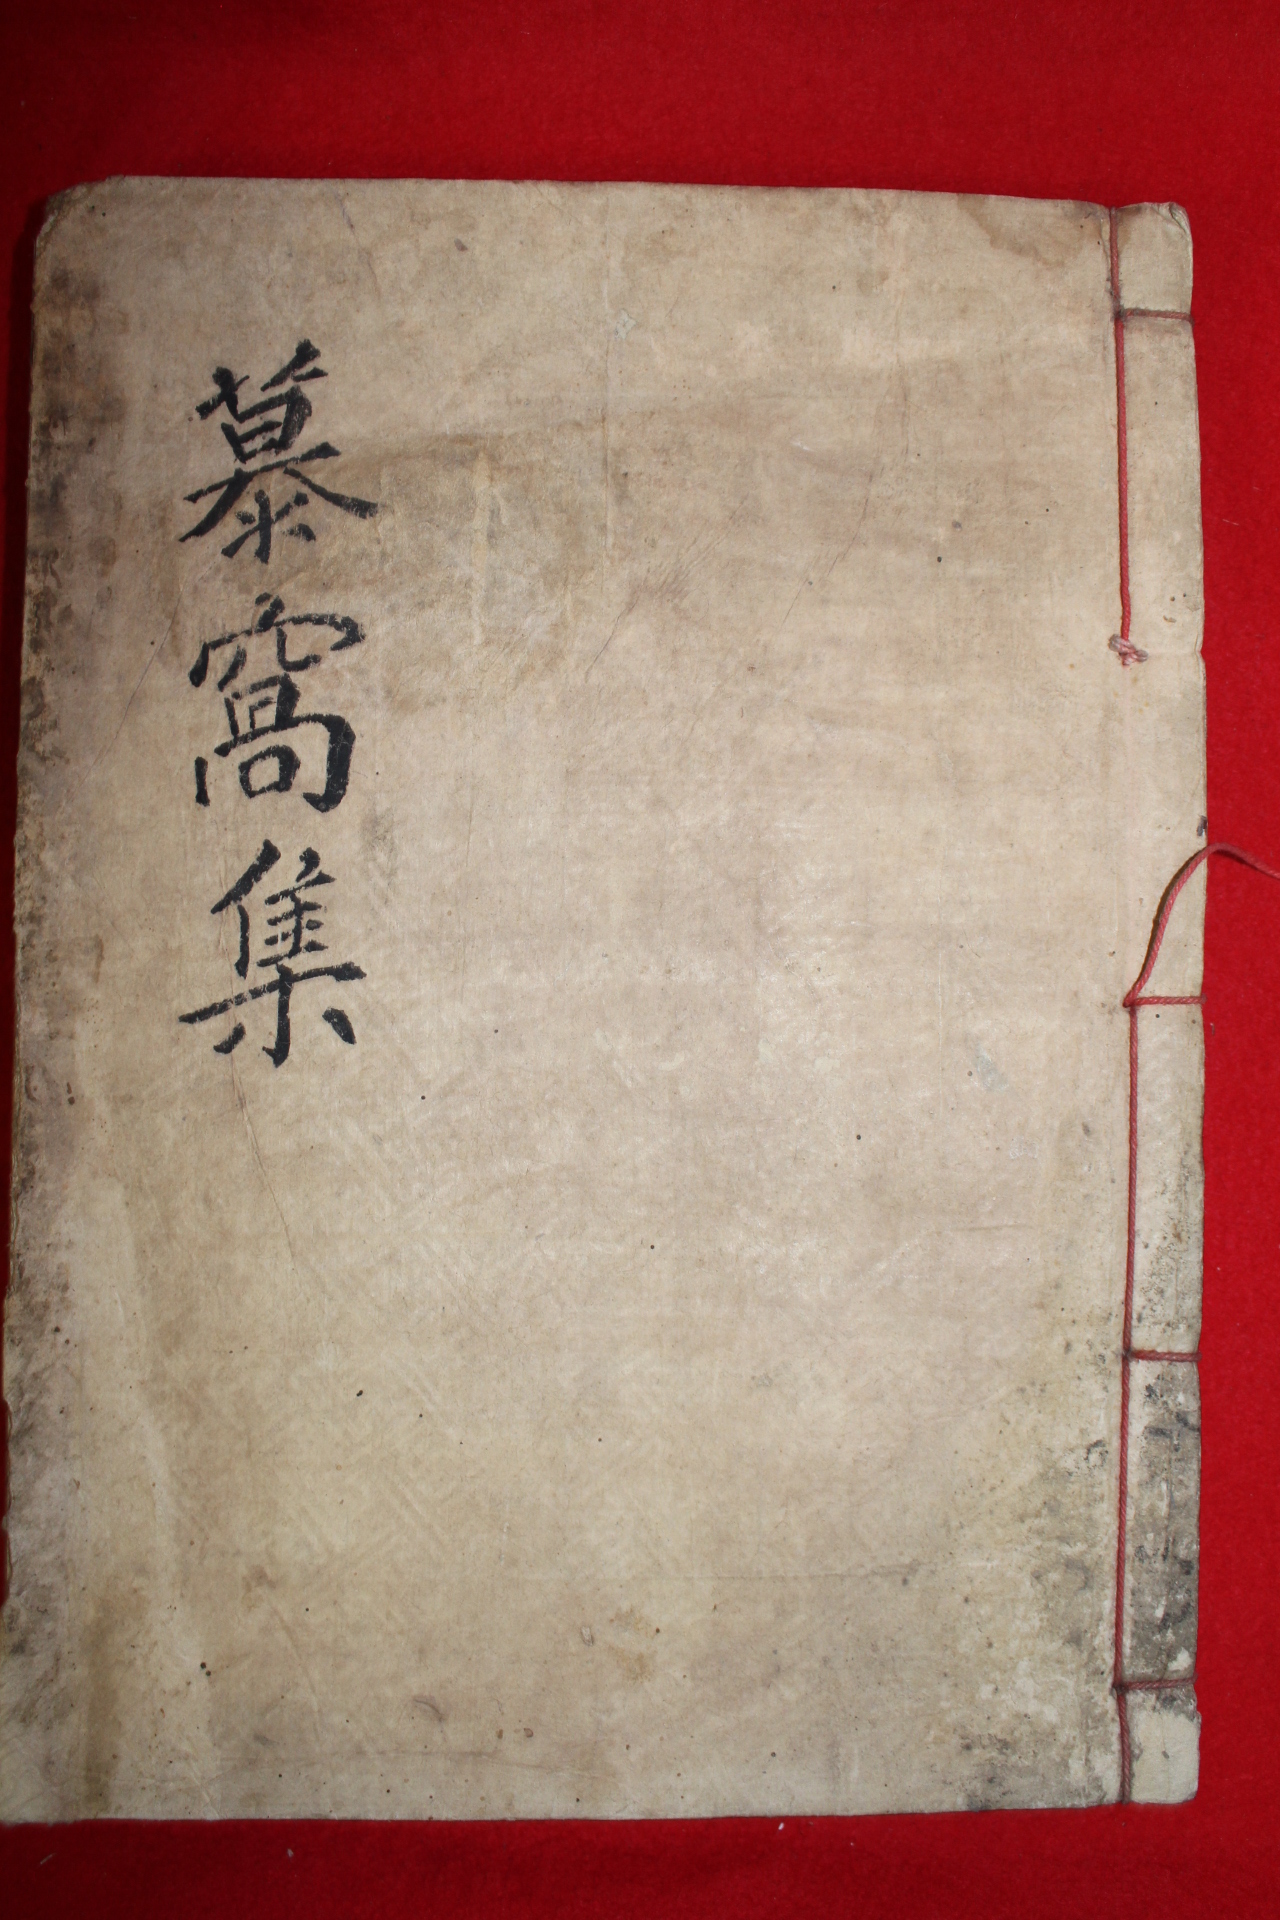 慕窩集